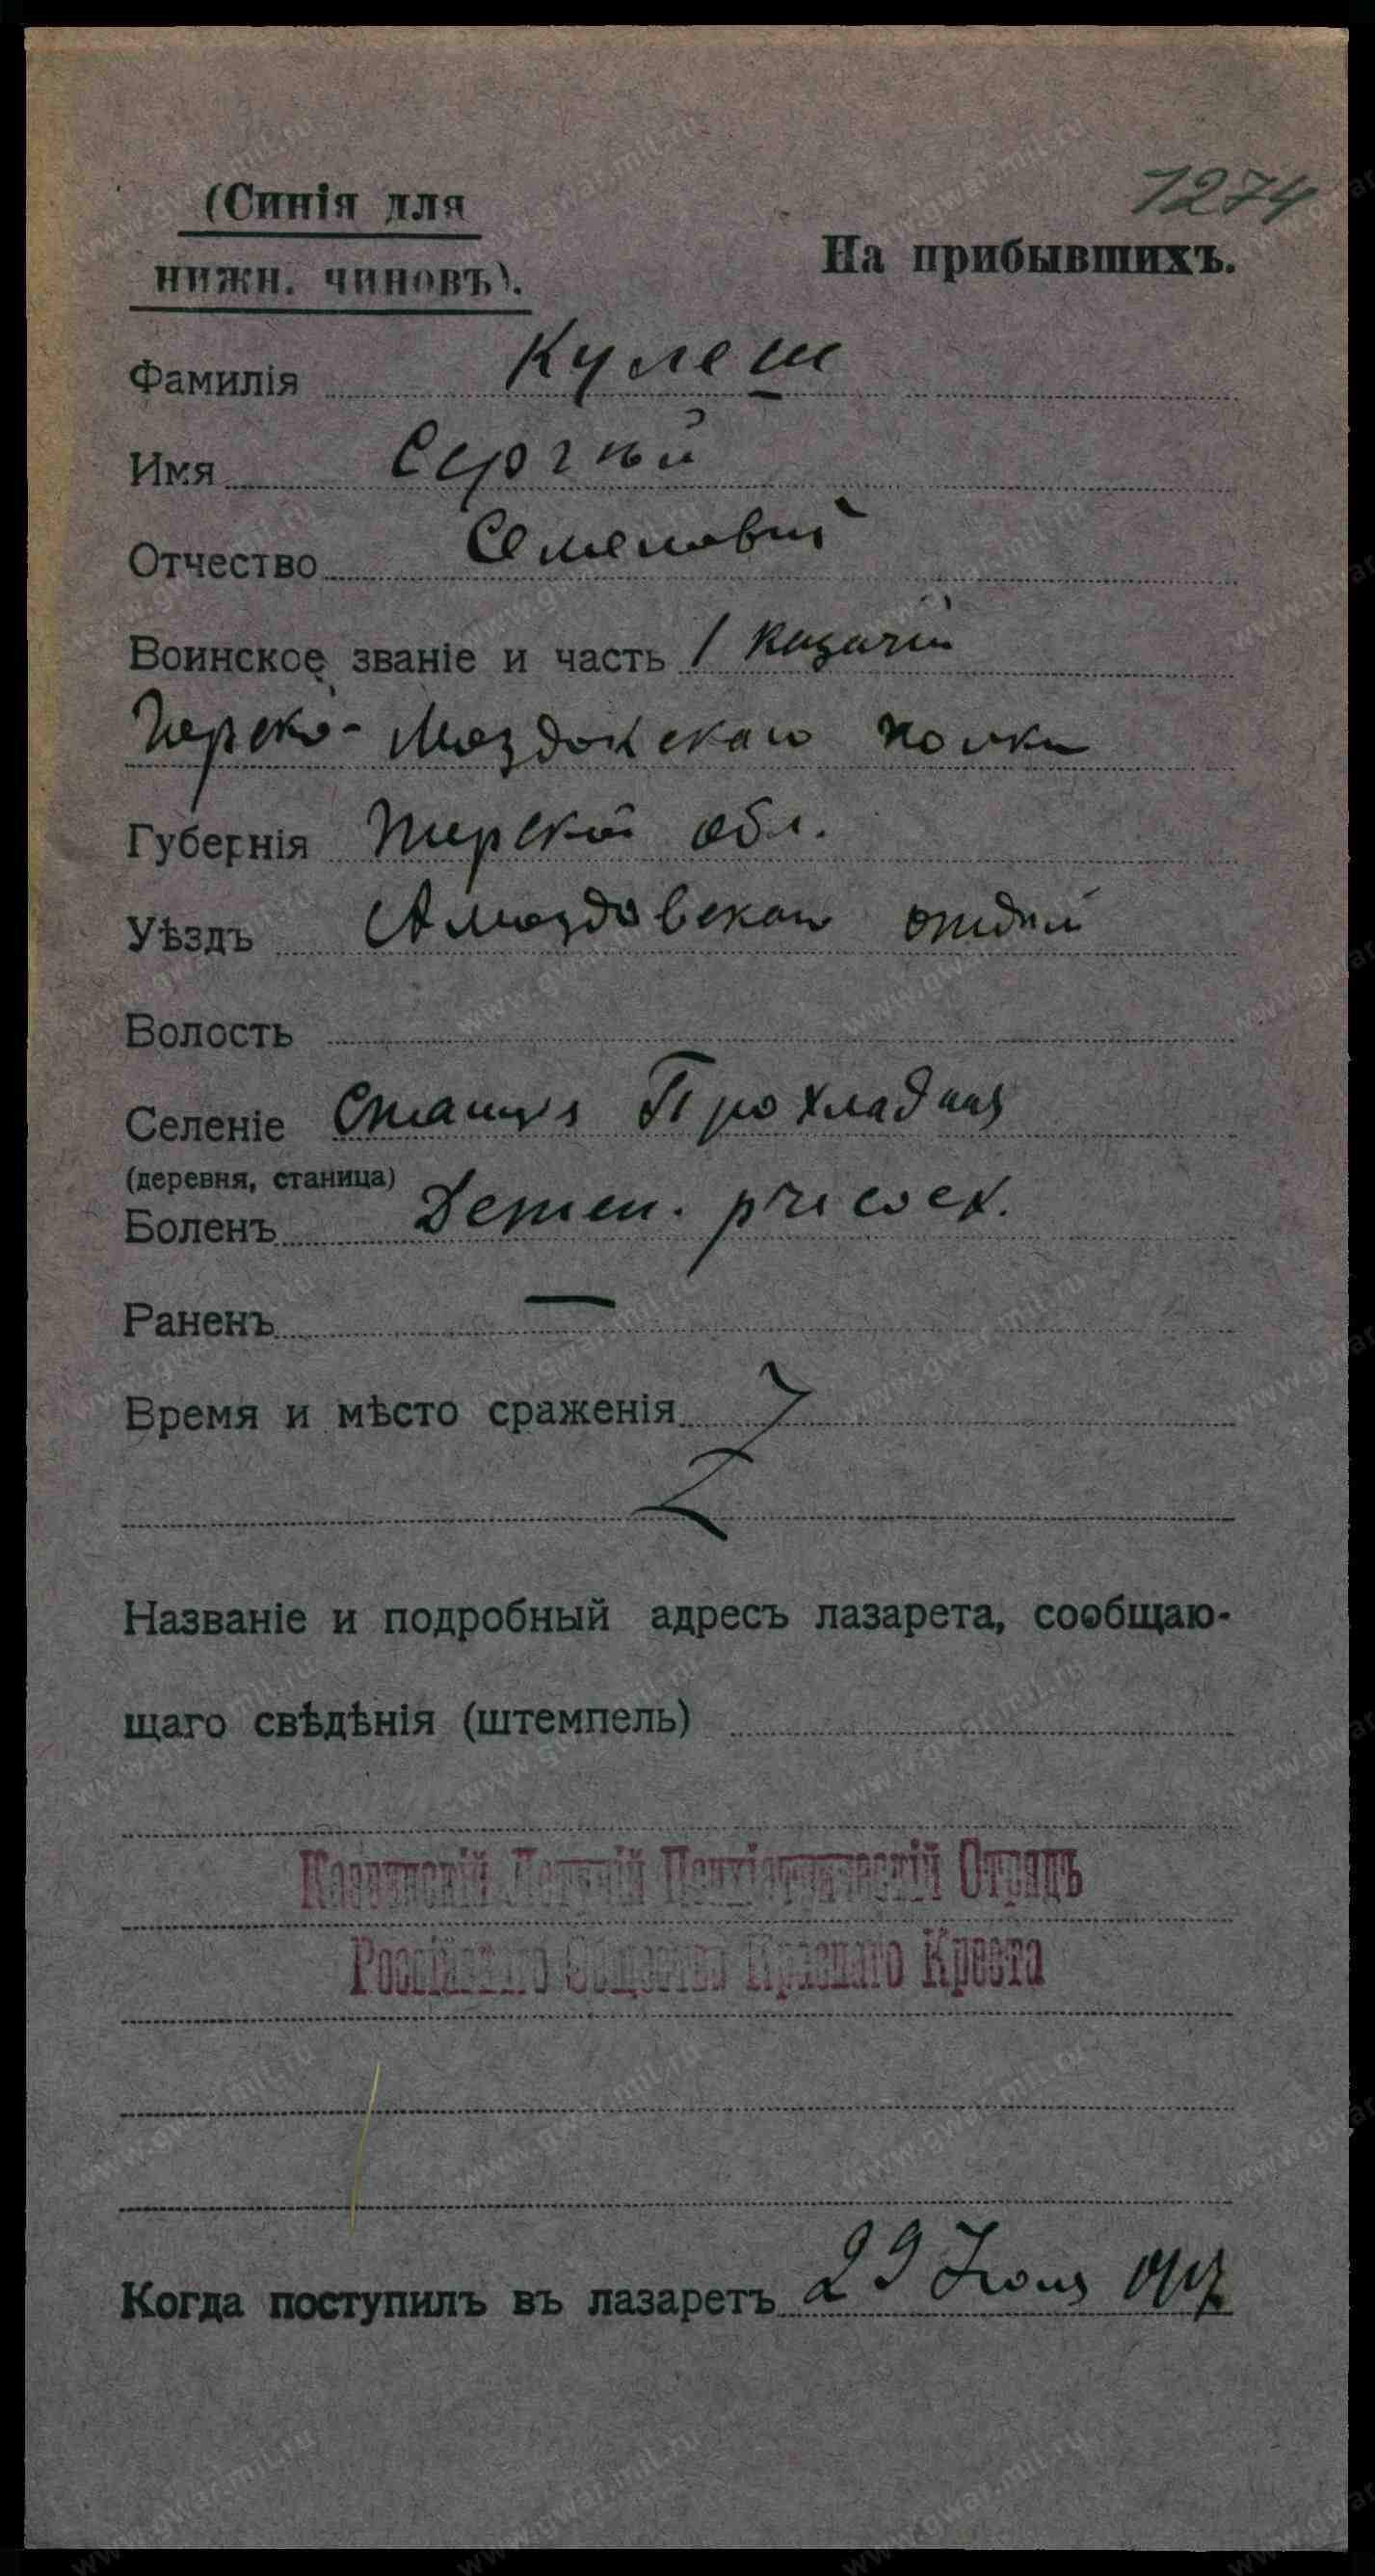 1274
(Синія для
нижн. чиновъ).
На прибывшихъ.
Фамилія Кулеш
Имя Сергѣй
Отчество Семенович
Воинское званіе и часть 1 Казачій
Терско-Моздокскаго полка
Губернія Терской обл.
Уѣздъ отдѣл
Волость
Селеніе Станция Прохладная
(деревня, станица)
Боленъ Demen. praecox.
Раненъ —
Время и мѣсто сраженія
Названіе и подробный адресъ лазарета, сообщаю-
щаго свѣдѣнія (штемпель)
Казанскій Летучій Психіатрическій Отрядъ
Россійскаго Общества Краснаго Креста
Когда поступилъ въ лазаретъ 29 Июля 1917